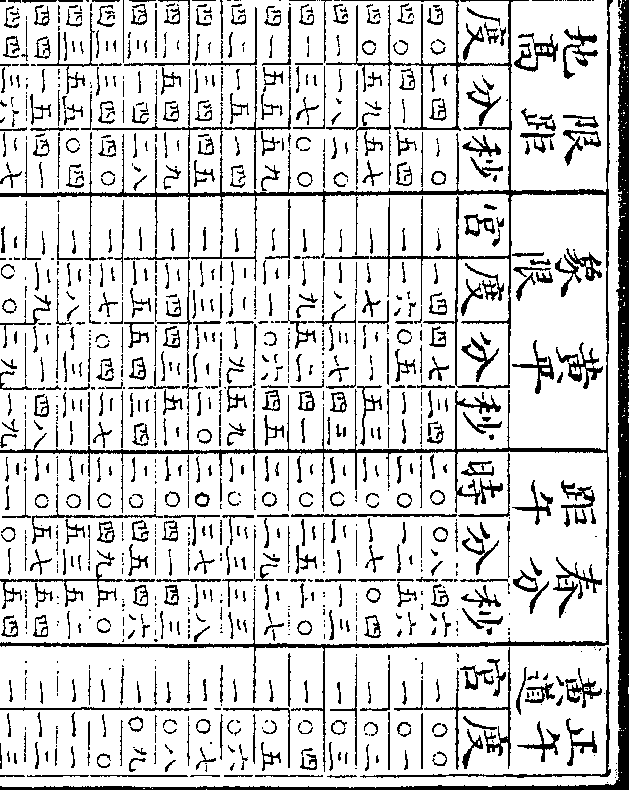 地高 限距 象限 黄平 距午 春分 黄道 正午
度 分 秒 宮 度 分 秒 時 分 秒 宮 度
四〇 二四 一〇 一 一四 四七 三四 二〇 〇八 四六 一 〇〇
四〇 四一 五四 一 一六 〇五 一一 二〇 一二 五六 一 〇一
四〇 五九 五七 一 一七 二一 五三 二〇 一七 〇四 一 〇二
四一 一八 二〇 一 一八 三七 四三 二〇 二一 一三 一 〇三
四一 三七 〇〇 一 一九 五二 四一 二〇 二五 二〇 一 〇四
四一 五五 五九 一 二一 〇六 四五 二〇 二九 二七 一 〇五
四二 一五 一四 一 二二 一九 五九 二〇 三三 三三 一 〇六
四二 三四 四五 一 二三 三二 二〇 二〇 三七 三八 一 〇七
四二 五四 二九 一 二四 四三 五二 二〇 四一 四三 一 〇八
四三 一四 二八 一 二五 五四 三四 二〇 四五 四六 一 〇九
四三 三四 四〇 一 二七 〇四 二七 二〇 四九 五〇 一 一〇
四三 五五 〇四 一 二八 一三 三一 二〇 五三 五二 一 一一
四四 一五 四一 一 二九 二一 四八 二〇 五七 五四 一 一二
四四 三六 二七 二 〇〇 二九 一九 二一 〇一 五四 一 一三